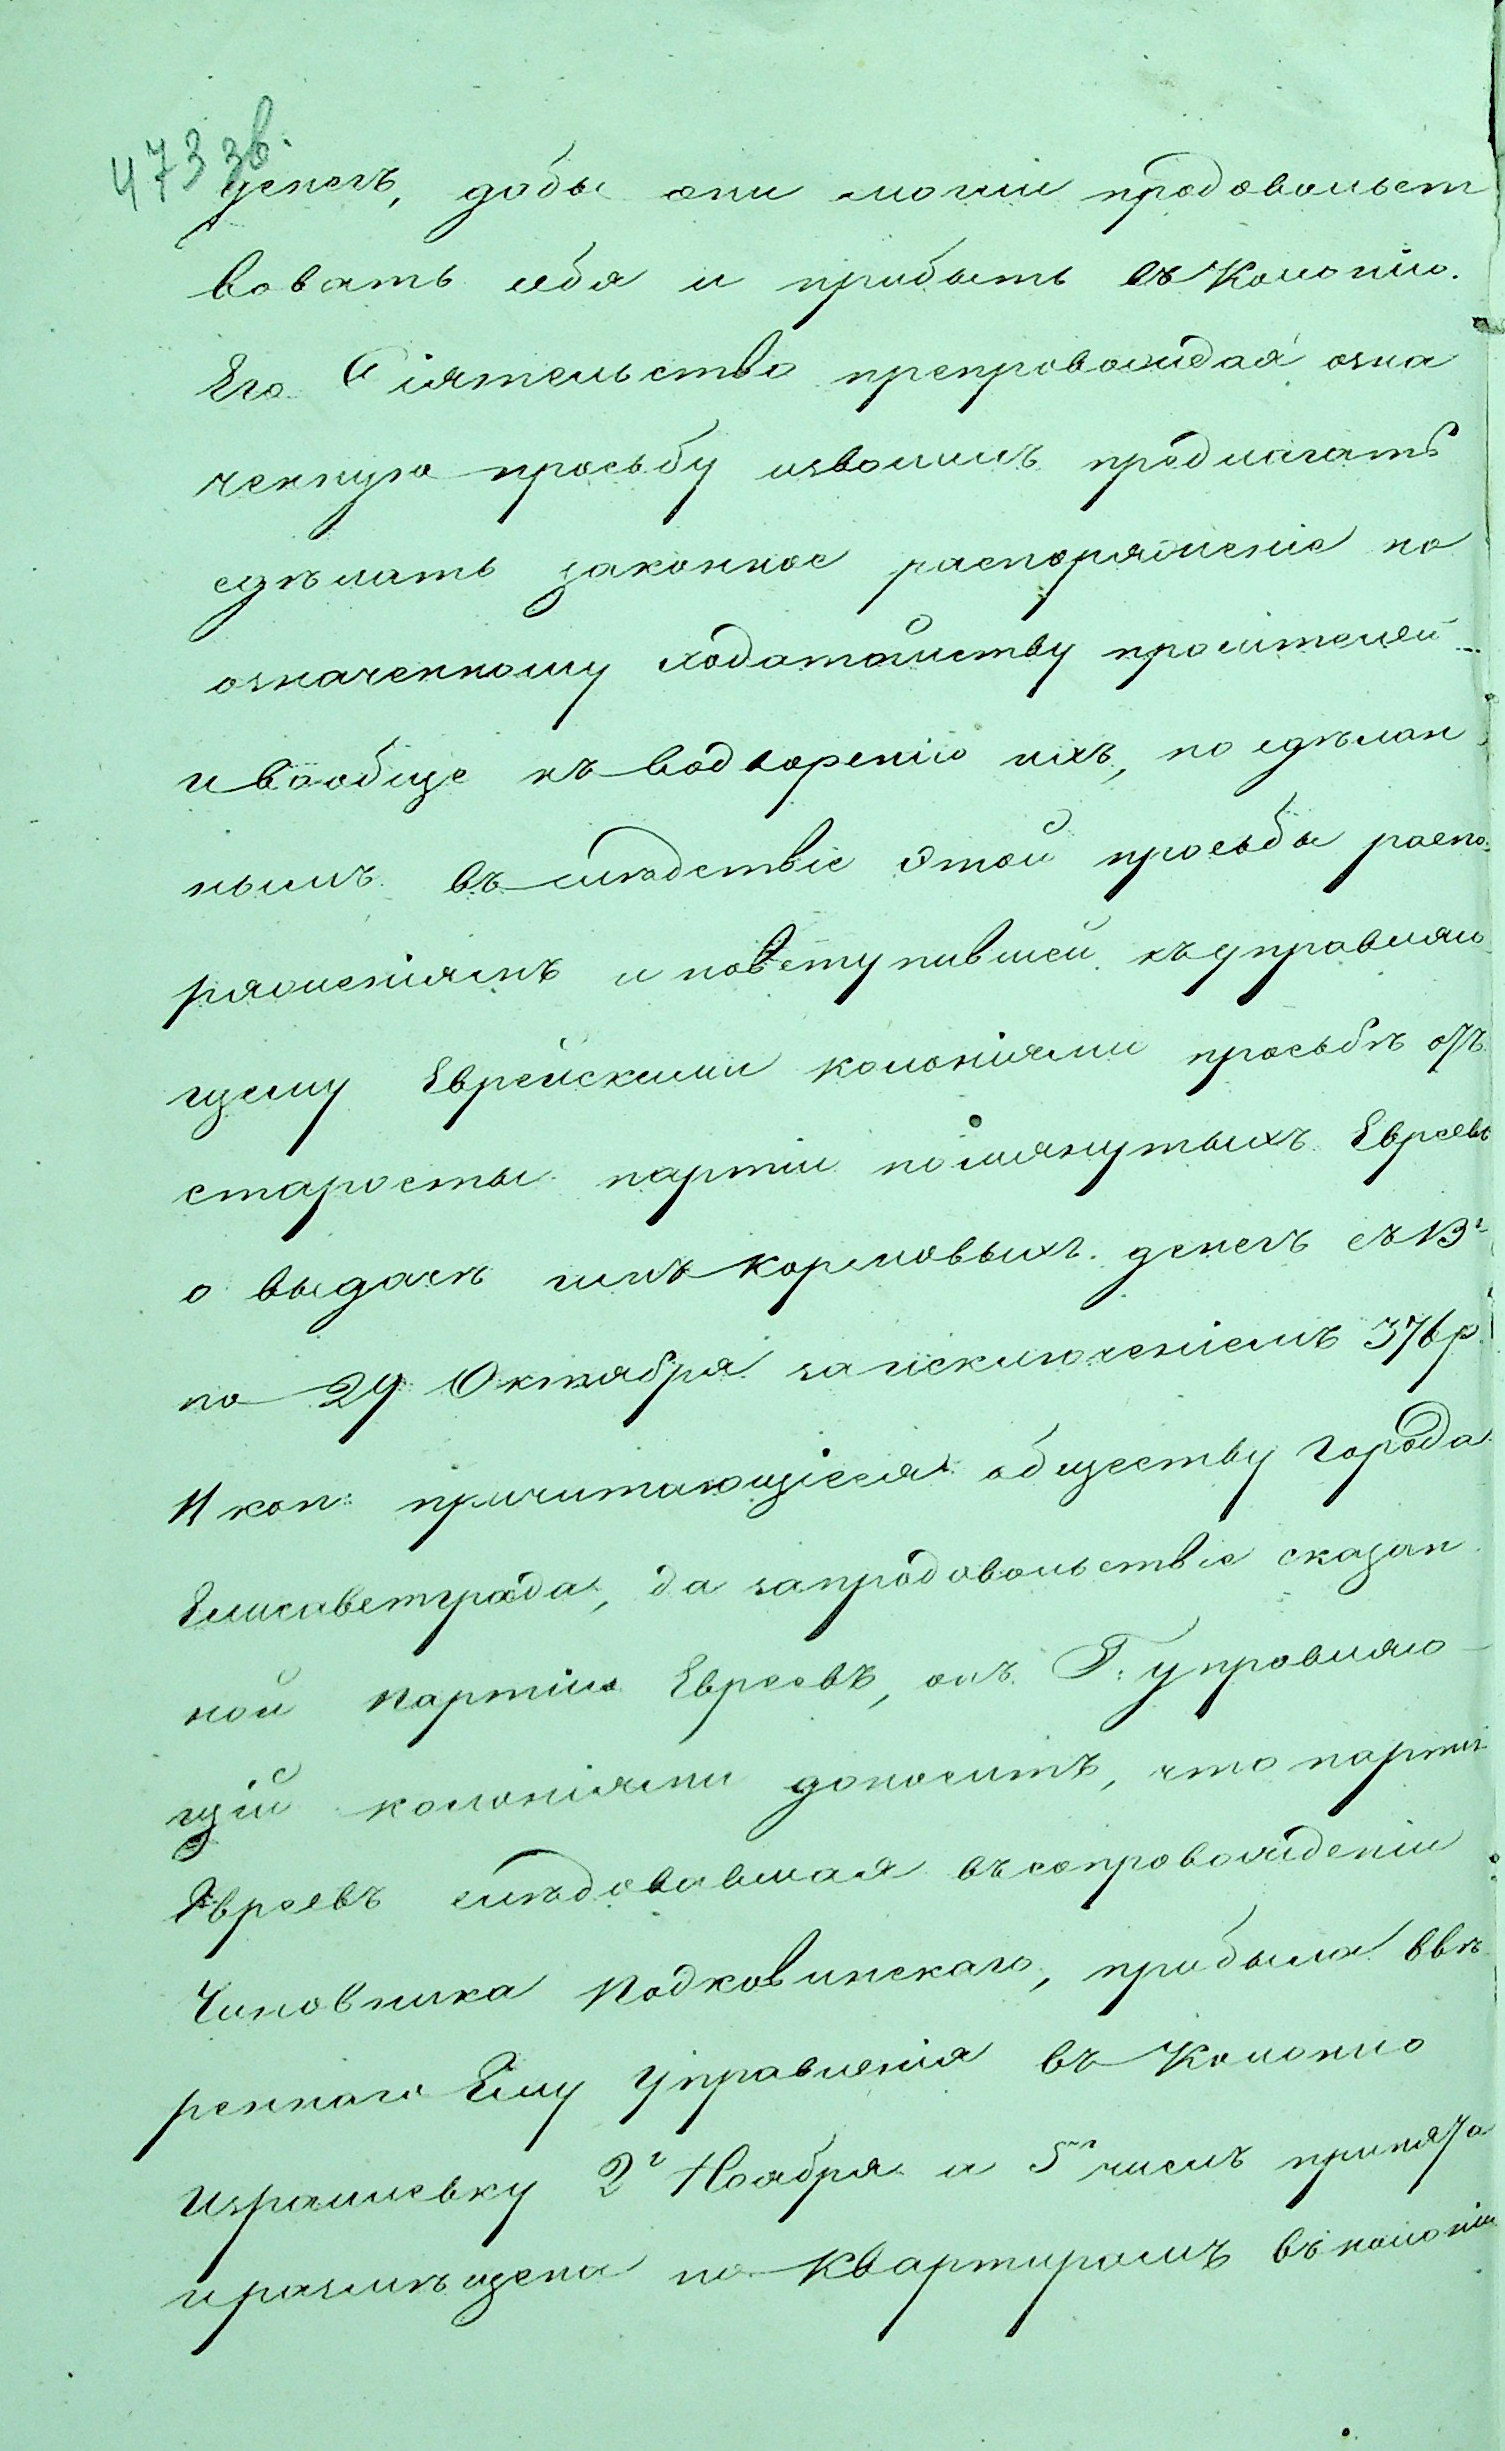 473 зв.
денегъ, дабы они могли продовольст
вовать себя и прибыть въ Колонію.
Его Сіятельство препровождая озна
ченную просьбу изволилъ предлагать
сдѣлать законное распоряженіе по
означенному ходатайству просителей
и вообще къ водворенію ихъ, по сдѣлан
нымъ въ слѣдствіе этой просьбы распо
ряженіямъ и поступившей къ управляю
щему Еврейскими колоніями просьбѣ отъ
старосты партіи помянутыхъ Евреевъ
о выдачѣ имъ кормовыхъ денегъ съ 13г
по 29 Октября за исключеніемъ 376 р.
11 коп: причитающіеся обществу города
Елисаветграда, да за продовольствіе сказан
ной партіи Евреевъ, онъ Г: управляю
щій колоніями доноситъ, что партія
Евреевъ слѣдовавшая въ сопровожденіи
Чиновника Подковинскаго, прибыла ввѣ
реннаго Ему Управленія въ Колонію
Израилевку 2г Ноября и 5м числъ принята
и размѣщена по Квартирамъ въ колоніи